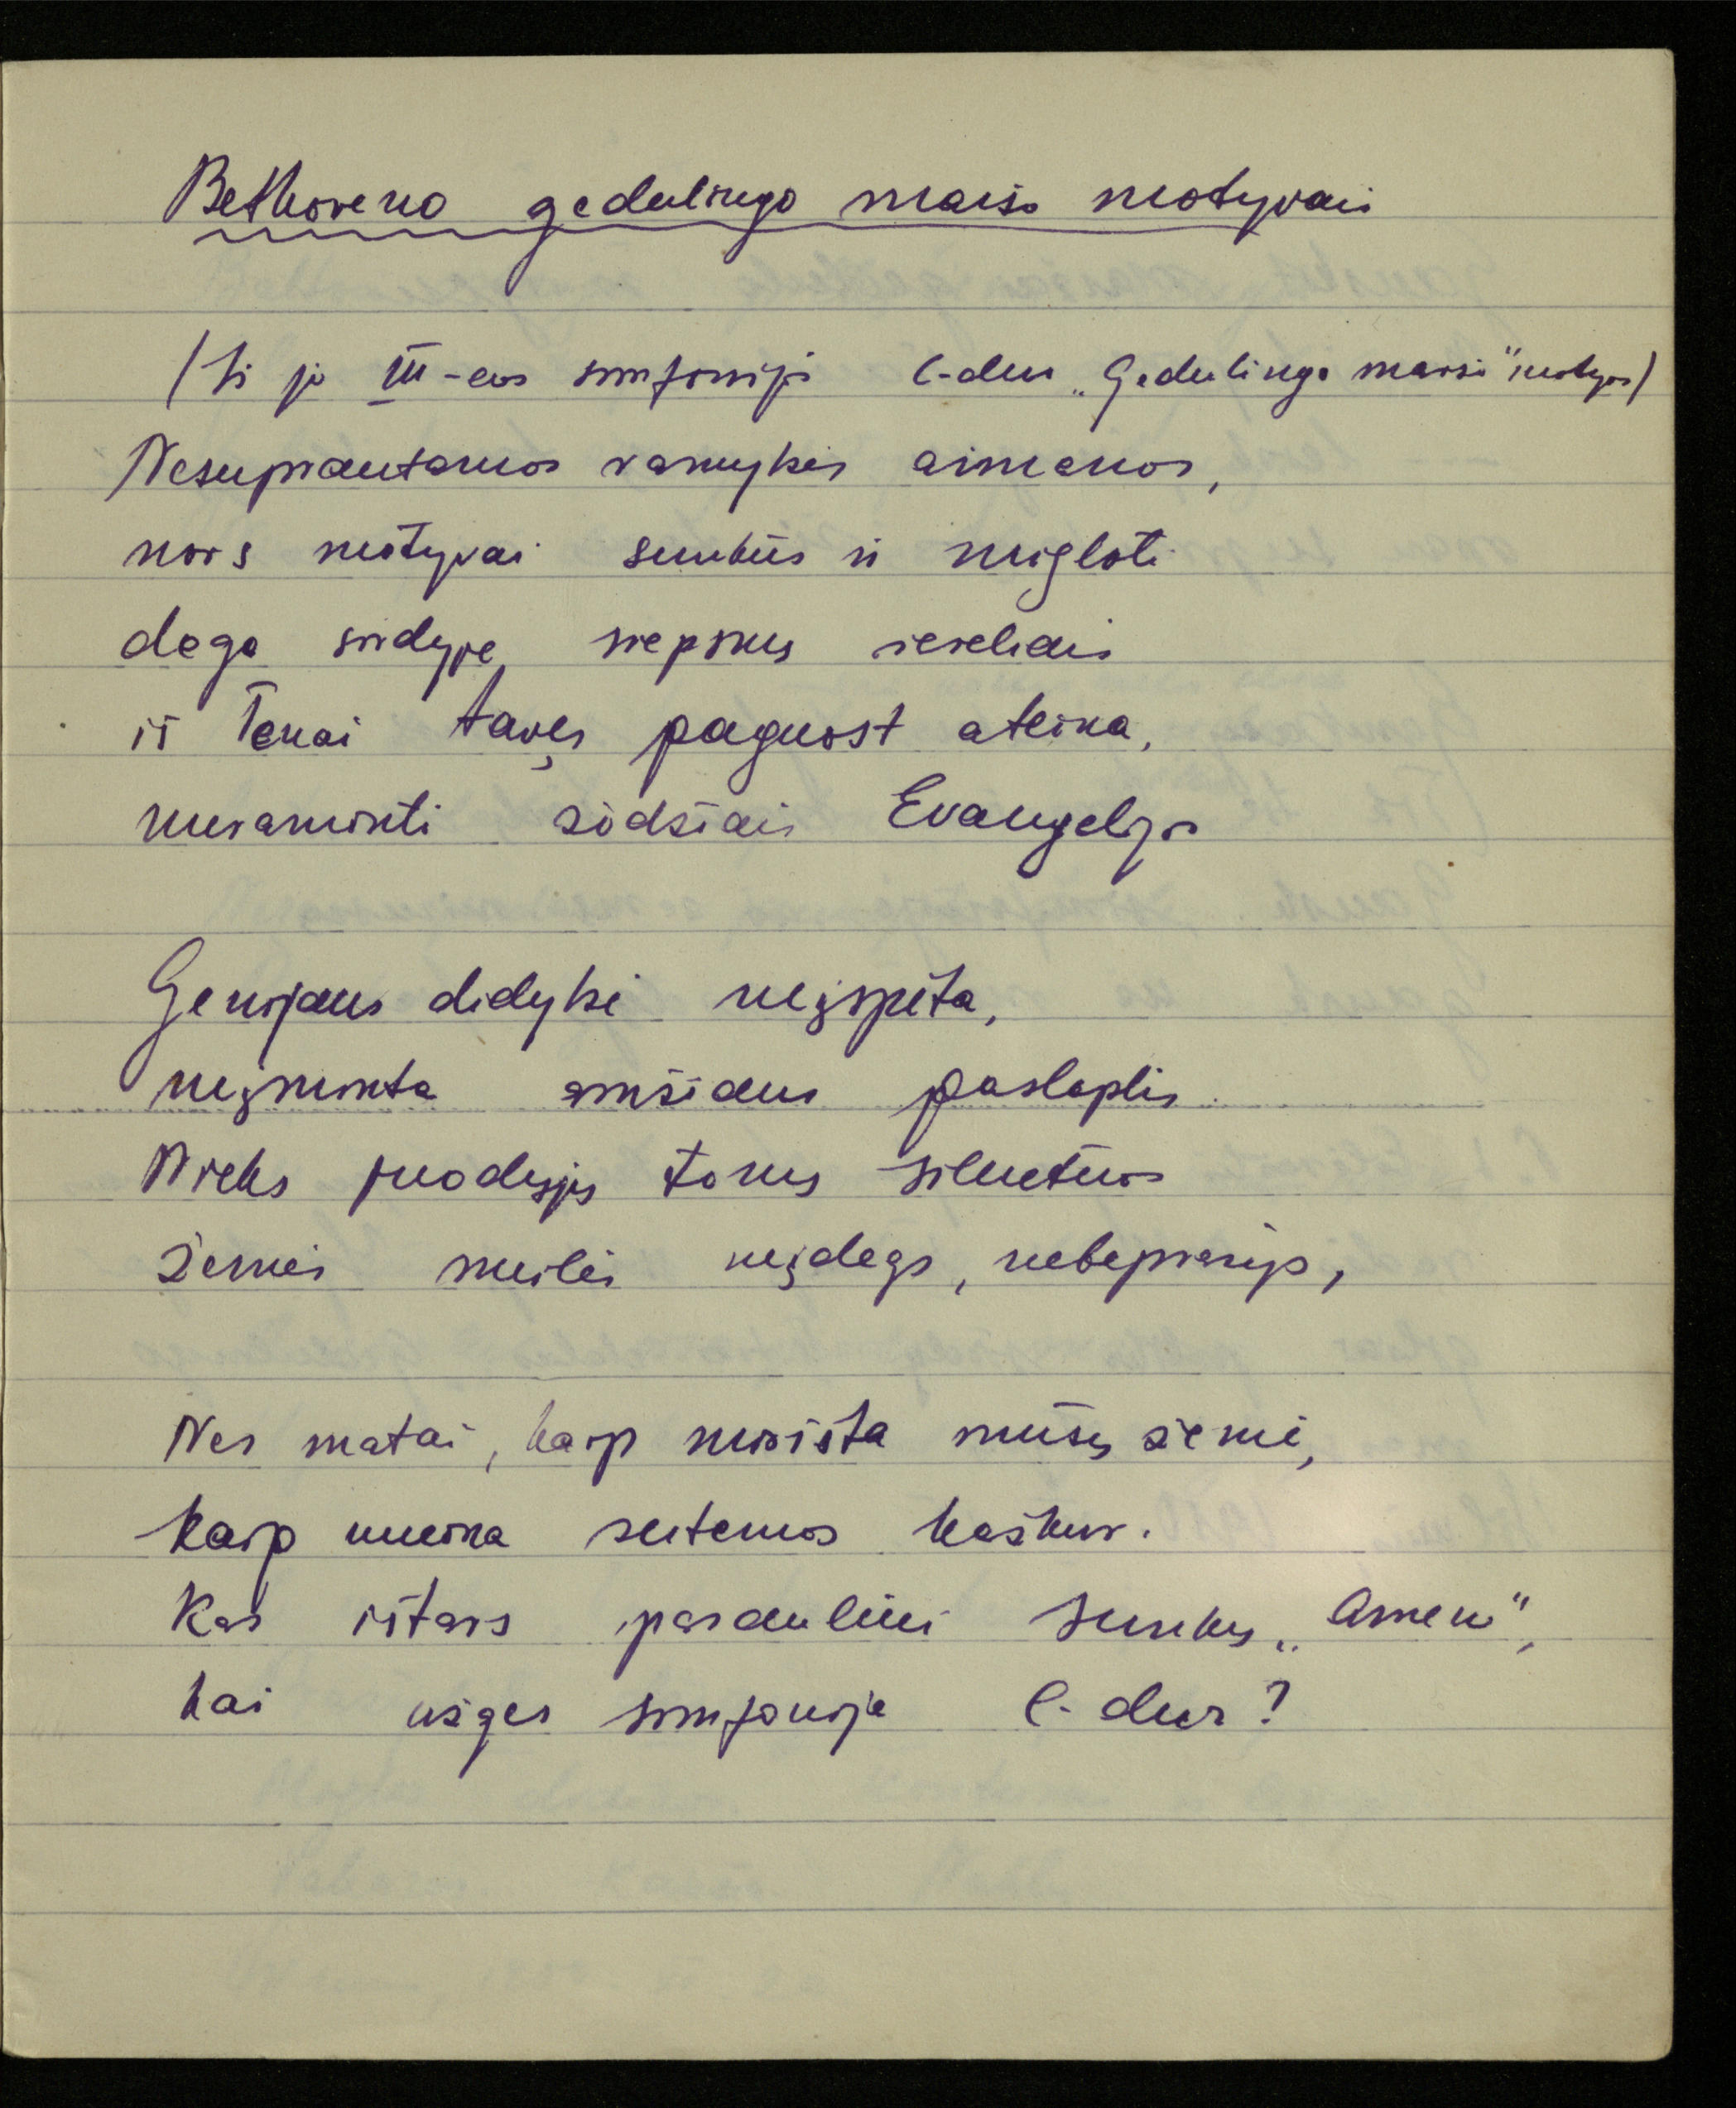 Bethoveno gedulingo maršo motyvais
(Iš jo III-ios simfonijos C-dur „Gedulingo maršo" motyvas)
Nesuprantamos ramybės aimanos,
nors motyvai sunkūs ir migloti
dega širdyje liepsnų liežuviais
iš Tenai tavęs paguost ateina,
nuraminti žodžiais Evangelijos
Genijaus didybė neįspėta,
neįminta amžiaus paslaptis
Nieks juodųjų tonų siluetuos
Žemės meilės neįdegs, nebeprašys,
Nes matai, kaip miršta mūsų žemė,
kaip nueina sutemos kažkur.
Kas ištars pasauliui sunkų „Amen",
kai užges simfonija C-dur?